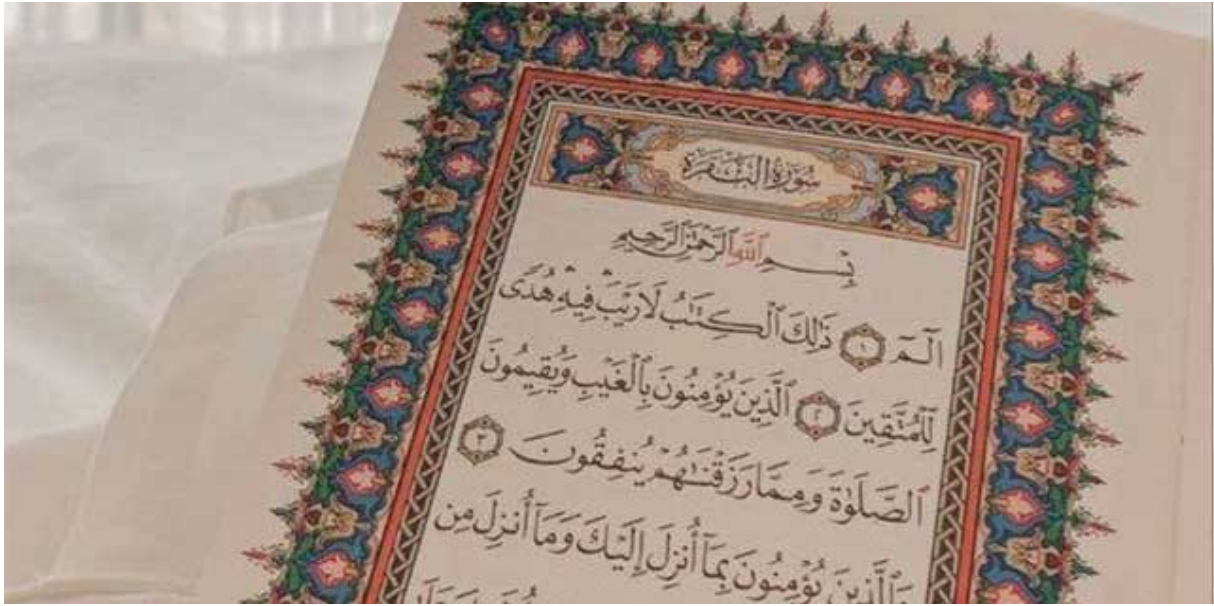 سُورَةُ الْبَقَرَةِ
بِسْمِ ٱللَّهِ ٱلرَّحْمَٰنِ ٱلرَّحِيمِ
الٓمٓ ١ ذَٰلِكَ ٱلْكِتَٰبُ لَا رَيْبَ فِيهِ هُدًى
لِّلْمُتَّقِينَ ٢ ٱلَّذِينَ يُؤْمِنُونَ بِٱلْغَيْبِ وَيُقِيمُونَ
ٱلصَّلَوٰةَ وَمِمَّا رَزَقْنَٰهُمْ يُنفِقُونَ ٣
وَٱلَّذِينَ يُؤْمِنُونَ بِمَآ أُنزِلَ إِلَيْكَ وَمَآ أُنزِلَ مِن